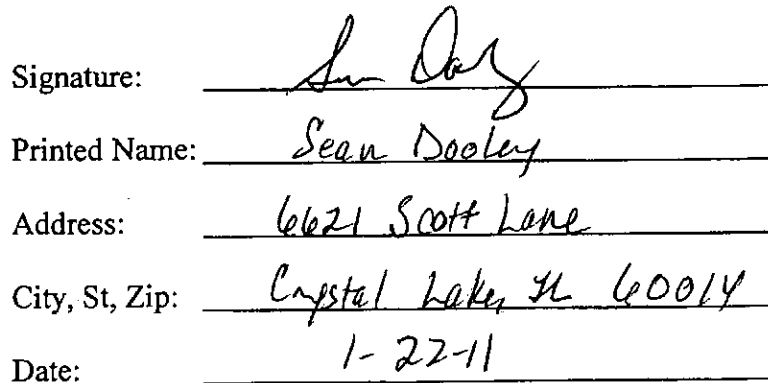 Signature: Sean Dooley
Printed Name: Sean Dooley
Address: 6621 Scott Lane
City, St, Zip: Crystal Lake, IL 60014
Date: 1-22-11